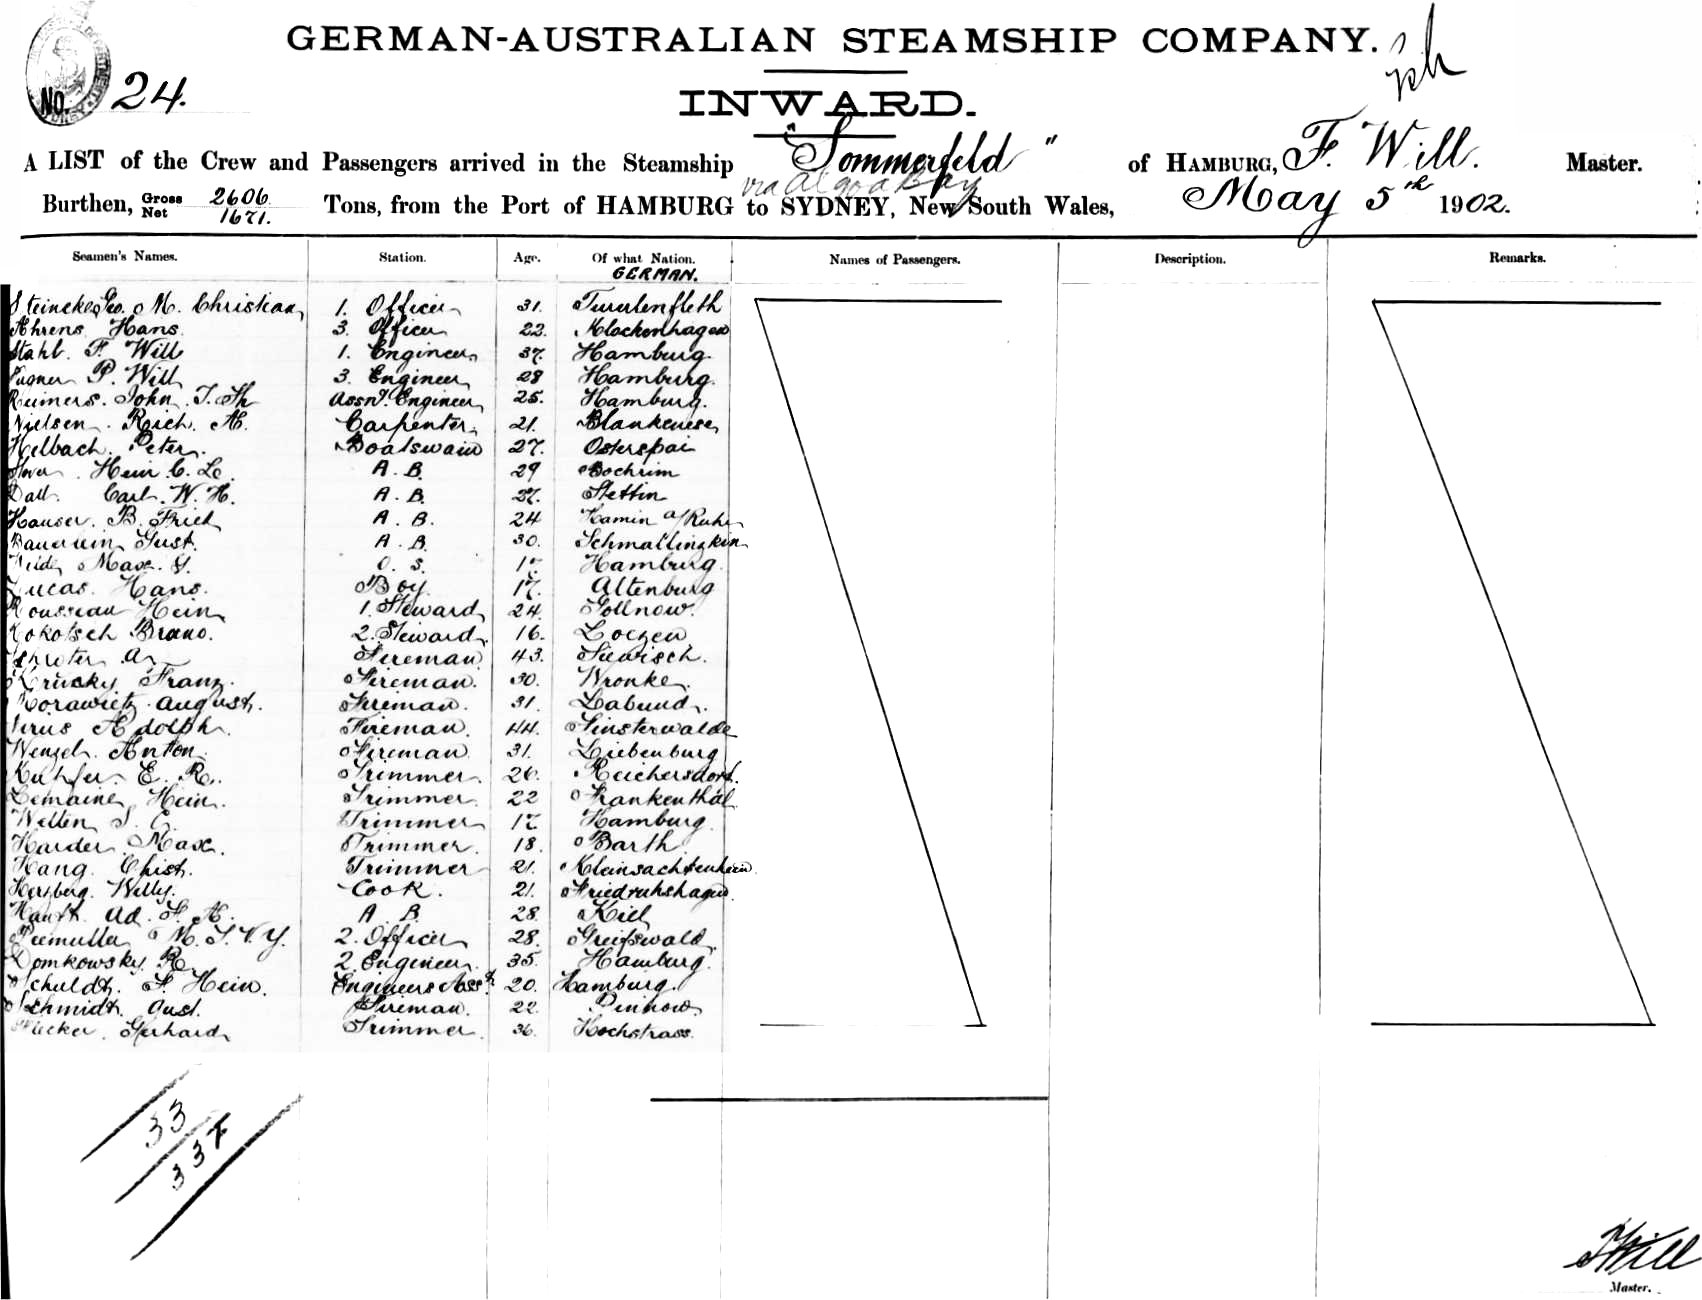 GERMAN-AUSTRALIAN STEAMSHIP COMPANY.
No. 24.
INWARD.
A LIST of the Crew and Passengers arrived in the Steamship "Sommerfeld" of HAMBURG, F. Will. Master.
via Algoa Bay
Burthen, Gross 2606 Net 1671. Tons, from the Port of HAMBURG to SYDNEY, New South Wales, May 5th 1902.
Seamen's Names. Station. Age. Of what Nation. Names of Passengers. Description. Remarks.
GERMAN.
Steincke Geo. M. Christian 1. Officer 31.
Ahrens Hans 3. Officer 22. Klockenhagen
Stahl. F. Will 1. Engineer 37. Hamburg.
P. Will 3. Engineer 28 Hamburg.
Reimers. John. T. Th Assnt. Engineer 25. Hamburg.
Nielsen. Reich. A. Carpenter. 21. Blankenese
Helbach. Peter. Boatswain 27. Osterspai
Hein. C. L. A. B. 29
Dall. Carl. W. H. A. B. 27. Stettin
Hauser. B. Fried A. B. 24 Hamin a/Ruhr
Gust. A. B. 30.
Max. O. S. 17. Hamburg.
Lucas. Hans. Boy. 17. Altenburg
Rousseau Hein 1. Steward 24. Gollnow.
Kokotsch Bruno. 2. Steward. 16. Loezen
Schroter. A Fireman 43.
Krusky Franz. Fireman. 30. Wronke.
Morawietz. August. Fireman. 31. Labund.
Adolph. Fireman. 44. Finsterwalde
Wenzel. Anton. Fireman 31. Liebenburg
E. R. Trimmer. 26. Reichersdorf.
Lemaine Hein. Trimmer. 22 Frankenthal
Welten Trimmer 17. Hamburg.
Harder. Max. Trimmer. 18. Barth
Hang. Christ. Trimmer 21. Kleinsachsenheim
Herzberg. Willy. Cook. 21. Friedrichshagen
Hauft. Ad. F. A. A. B. 28. Kiel
Peemuller M. 2. Officer 28. Greifswald.
Domkowsky. R. 2. Engineer. 35. Hamburg.
Schuldt. F. Hein. Engineers Asst. 20. Hamburg.
Schmidt. Gust. Fireman. 22. Pinnow
Gerhard Trimmer. 36. Hochstrass.
33
337
F Will
Master.